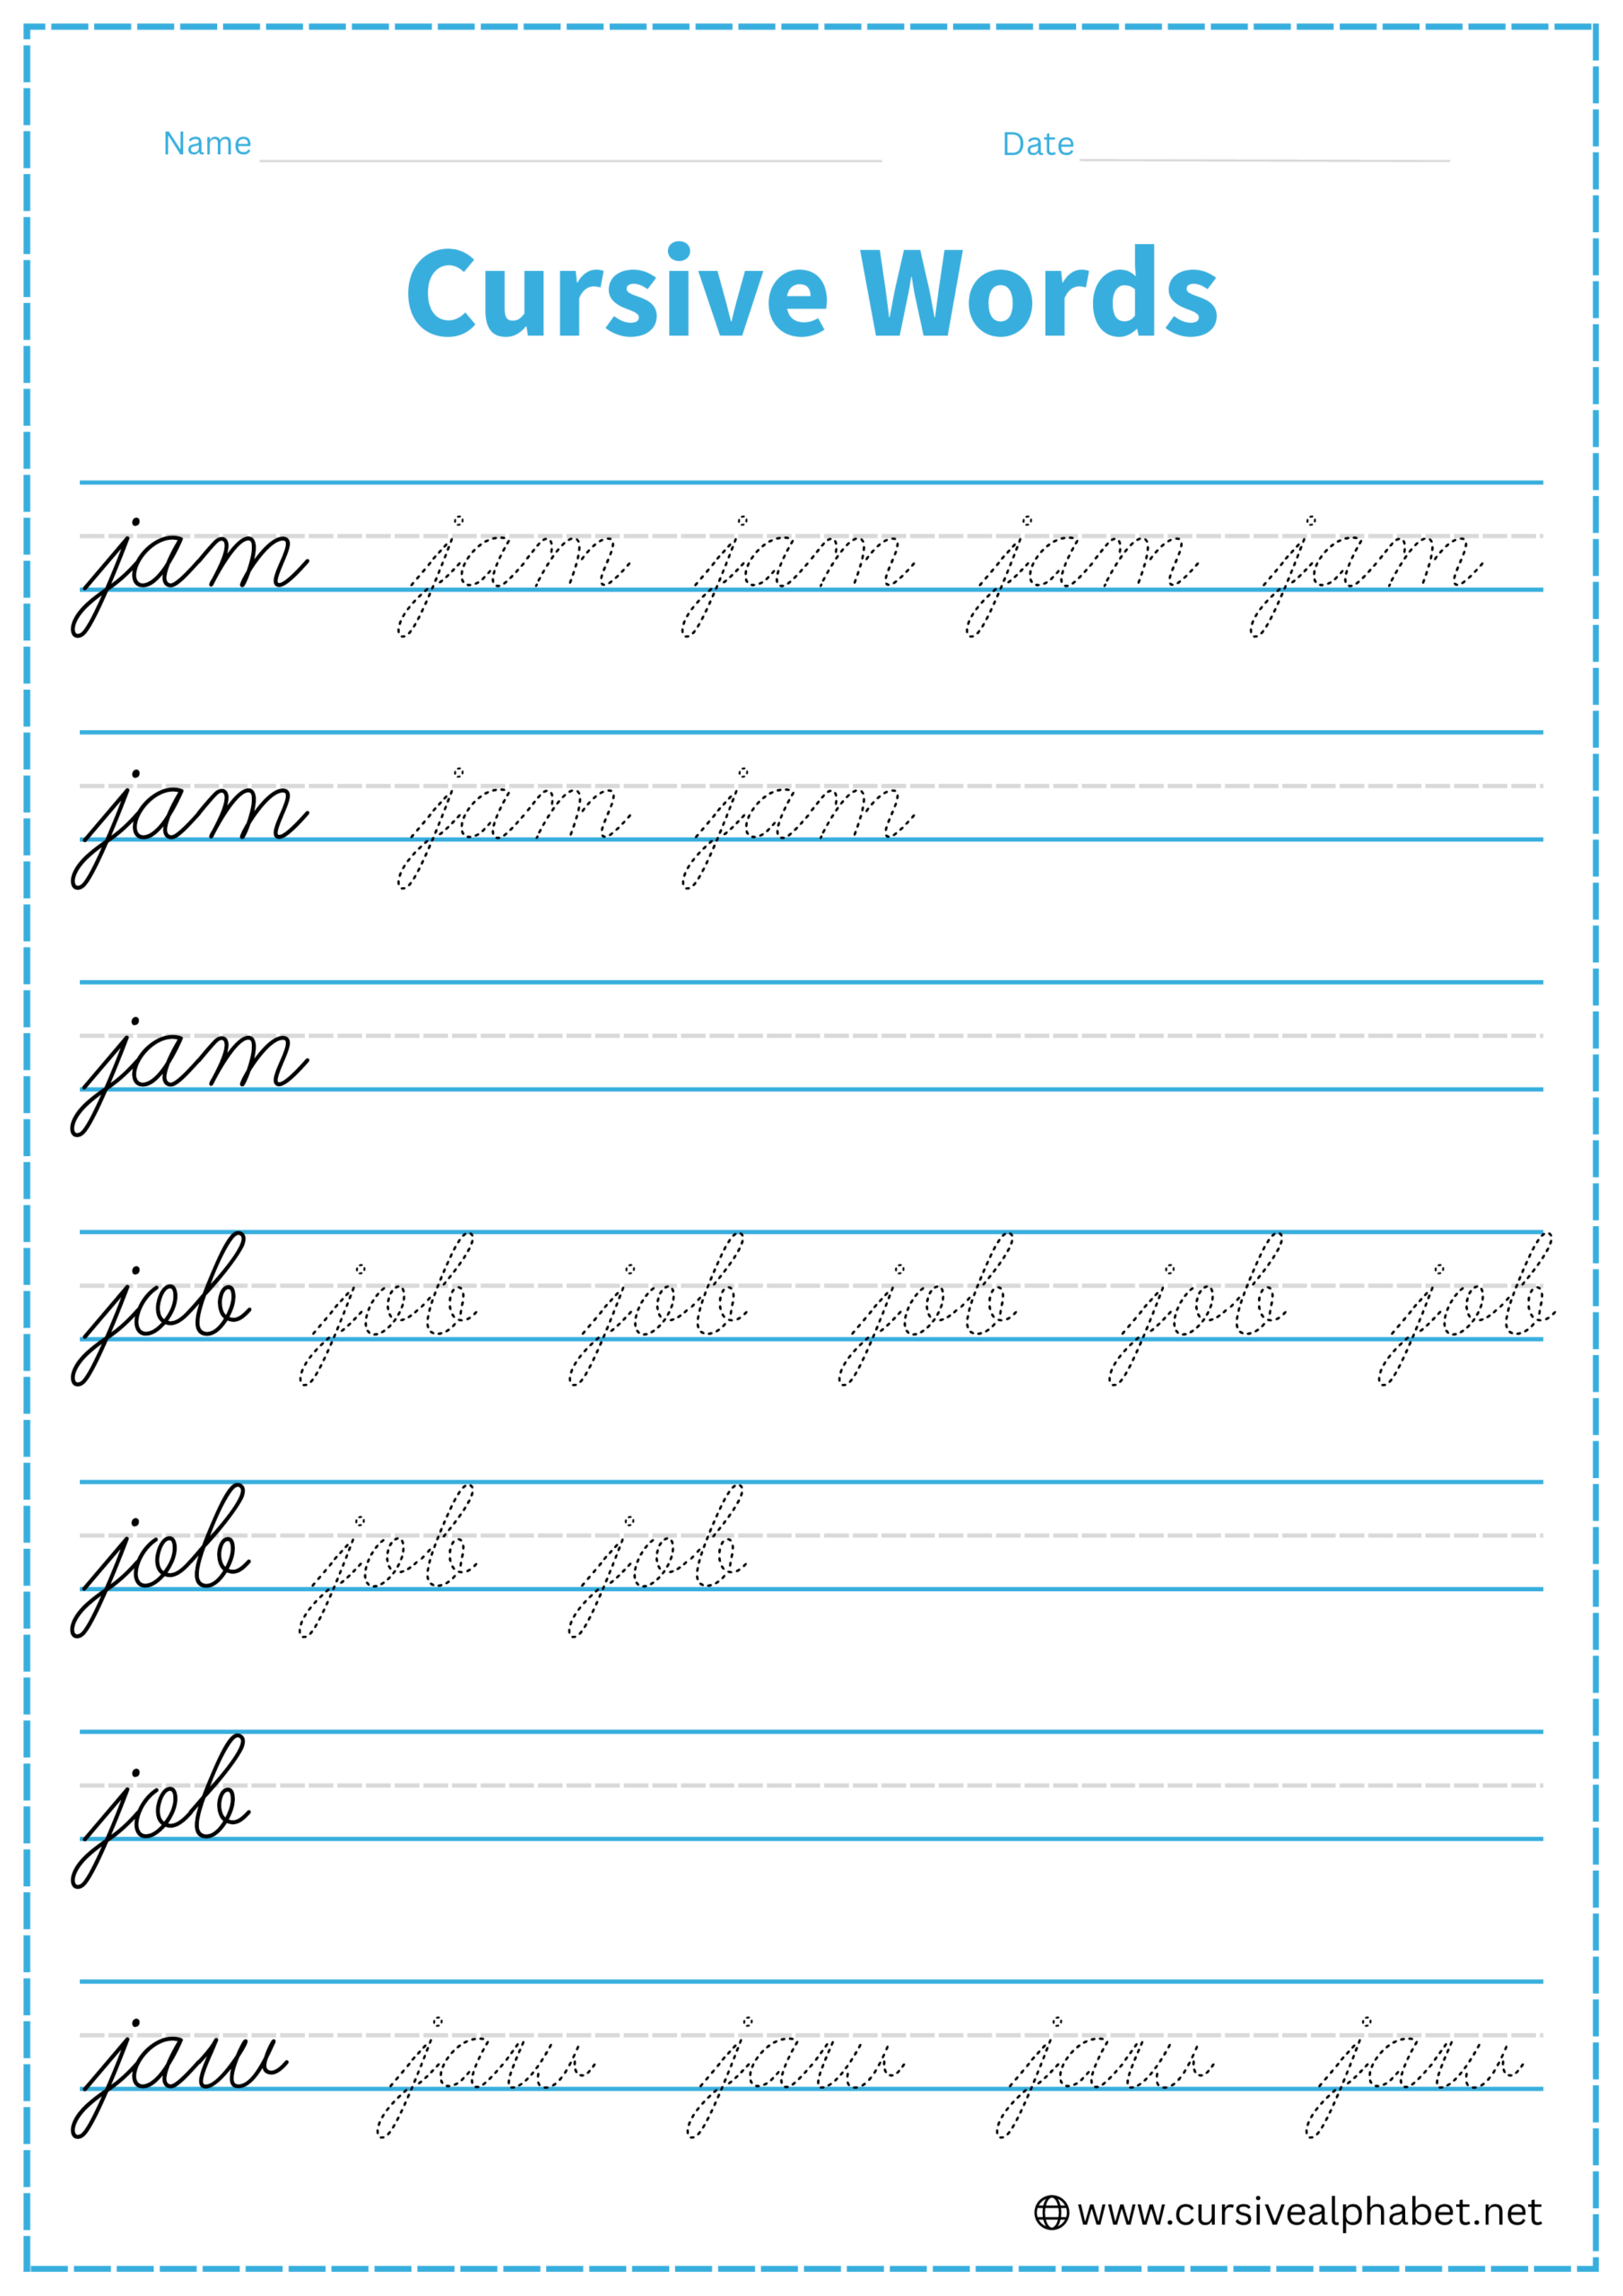 Name Date
Cursive Words
jam jam jam jam jam
jam jam jam
jam
job job job job job job
job job job
job
jaw jaw jaw jaw jaw
www.cursivealphabet.net